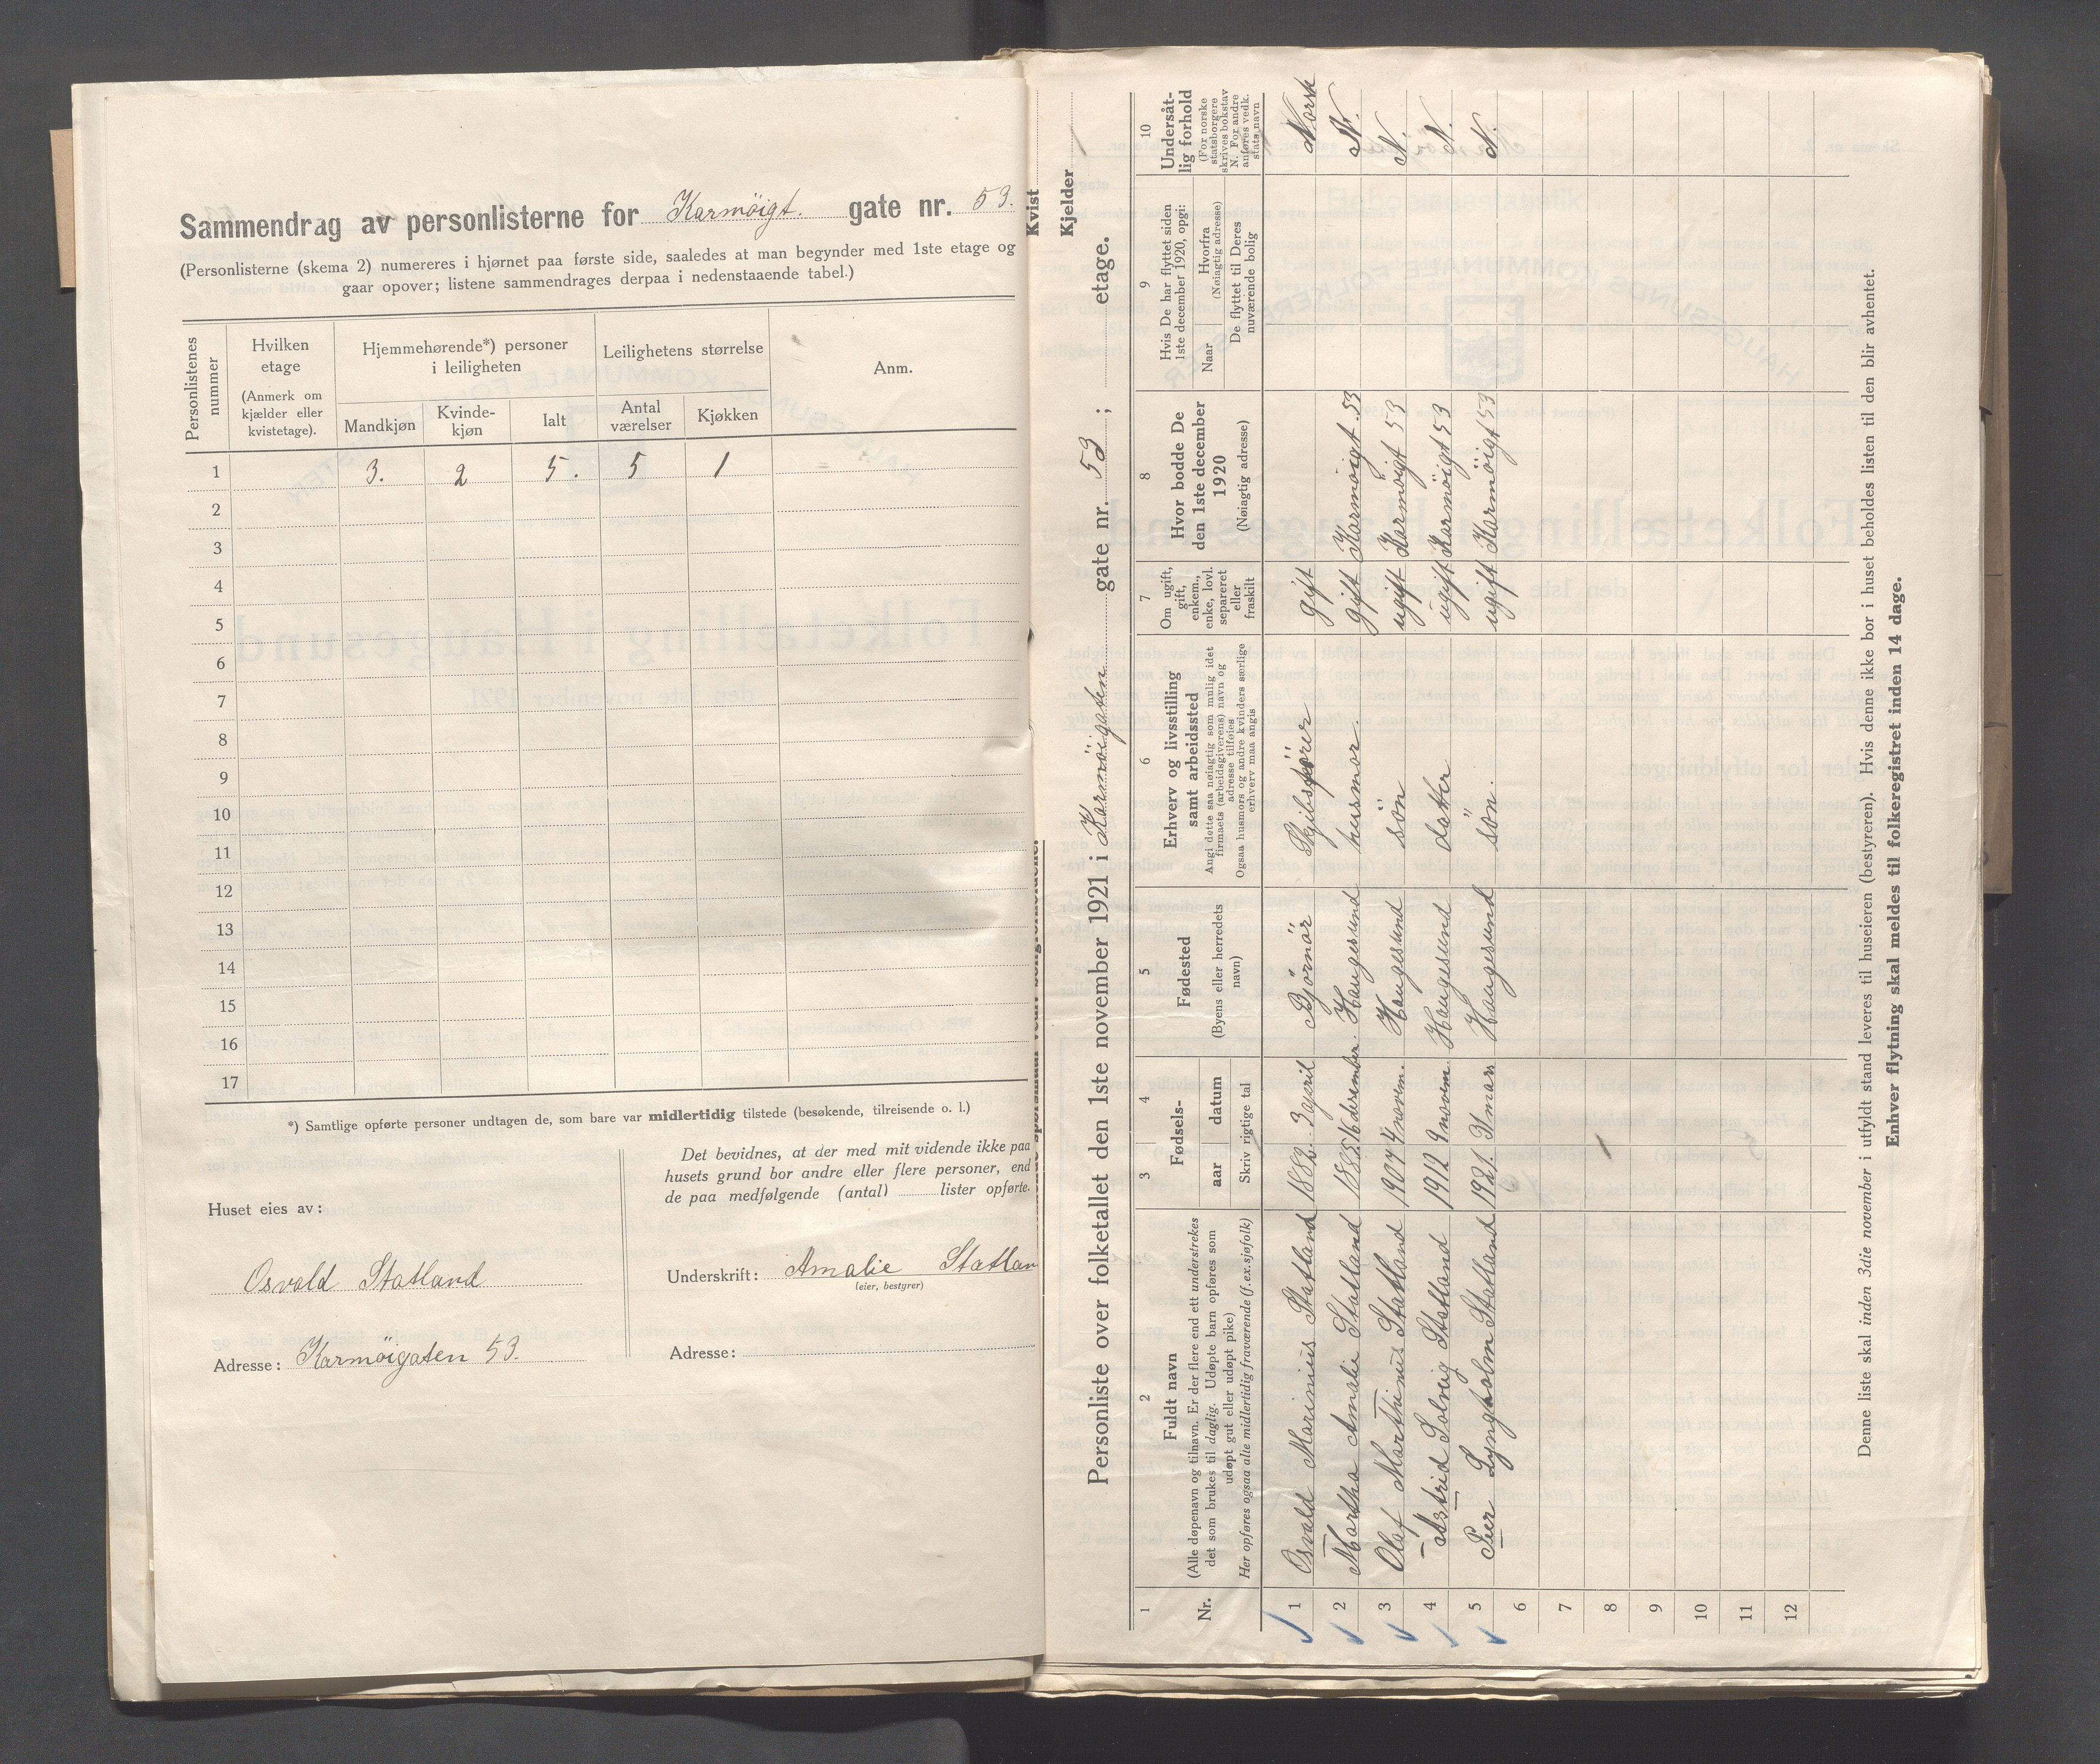 Sammendrag av personlisterne for Karmöigt. gate nr. 53.
(Personlisterne (skema 2) numereres i hjørnet paa første side, saaledes at man begynder med 1ste etage og
gaar opover; listene sammendrages derpaa i nedenstaaende tabel.)
Personlistenes nummer
Hvilken etage (Anmerk om kjælder eller kvistetage).
Hjemmehørende*) personer i leiligheten
Leilighetens størrelse
Anm.
Mandkjøn Kvinde-kjøn Ialt Antal værelser Kjøkken
1 3. 2 5. 5 1
2
3
4
5
6
7
8
9
10
11
12
13
14
15
16
17
*) Samtlige opførte personer undtagen de, som bare var midlertidig tilstede (besøkende, tilreisende o. l.)
Huset eies av:
Osvald Statland
Adresse: Karmöigaten 53.
Det bevidnes, at der med mit vidende ikke paa
husets grund bor andre eller flere personer, end
de paa medfølgende (antal) lister opførte.
Underskrift: Amalie Statlan
(eier, bestyrer)
Adresse:
Kvist
Kjelder
Personliste over folketallet den 1ste november 1921 i Karmöigaten gate nr. 53; etage.
1 2 3 4 5 6 7 8 9 10
Nr.
Fuldt navn
(Alle døpenavn og tilnavn. Er der flere end ett understrekes
det som brukes til daglig. Udøpte barn opføres som
udøpt gut eller udøpt pike)
Her opføres ogsaa alle midlertidig fraværende (f.ex. sjøfolk)
Fødsels-
aar datum
Skriv rigtige tal
Fødested
(Byens eller herredets navn)
Erhverv og livsstilling
samt arbeidssted
Angi dette saa nøiagtig som mulig idet
firmaets (arbeidsgiverens) navn og
adresse tilføies
Ogsaa husmors og andre kvinders særlige
erhverv maa angis
Om ugift, gift, enkem., enke, lovl. separeret eller fraskilt
Hvor bodde De
den 1ste december
1920
(Nøiagtig adresse)
Hvis De har flyttet siden
1ste december 1920, opgi:
Naar
Hvorfra
(Nøiagtig adresse)
De flyttet til Deres
nuværende bolig
Undersåt-
lig forhold
(For norske
statsborgere
skrives bokstav
N. For andre
anføres vedk.
stats navn
1 Osvald Marinius Statland 1882 3 april Bjørnör Skjibsförer gift Norsk
2 Martha Amalie Statland 1885 16 desember. Haugesund husmor gift Karmöigt. 53 N.
3 Olaf Marthinus Statland 1907 4 novem. Haugesund sön ugift Karmöigt 53 N.
4 Astrid Solveig Statland 1912 9 novem. Haugesund datter ugift Karmöigt 53 N.
5 Per Lyngholm Statland 1921. 31 mars Haugesund sön. ugift Karmöigt 53 N.
6
7
8
9
10
11
12
Denne liste skal inden 3die november i utfyldt stand leveres til huseieren (bestyreren). Hvis denne ikke bor i huset beholdes listen til den blir avhentet.
Enhver flytning skal meldes til folkeregistret inden 14 dage.